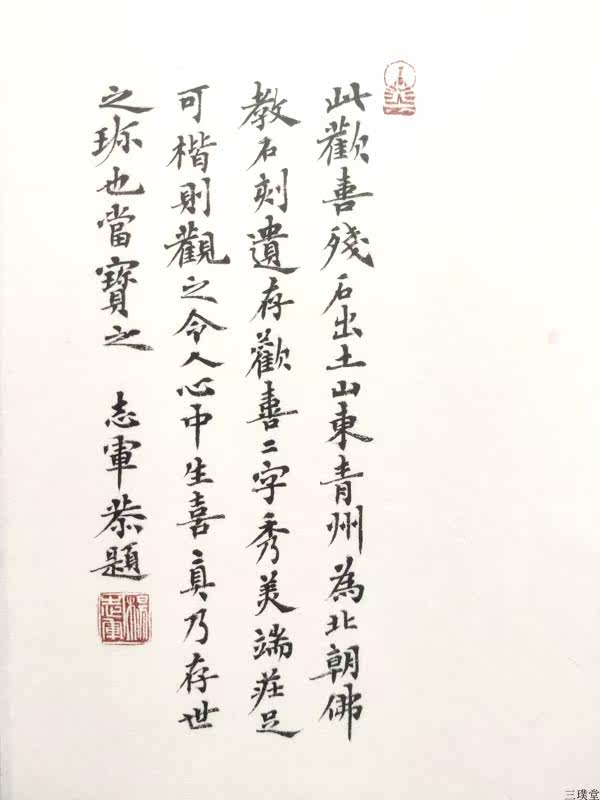 此歡喜殘石出土山東青州為北朝佛
教石刻遺存歡喜二字秀美端莊足
可楷則觀之令人心中生喜真乃存世
之珎也當寶之 志軍恭題
楊志軍
三璞堂